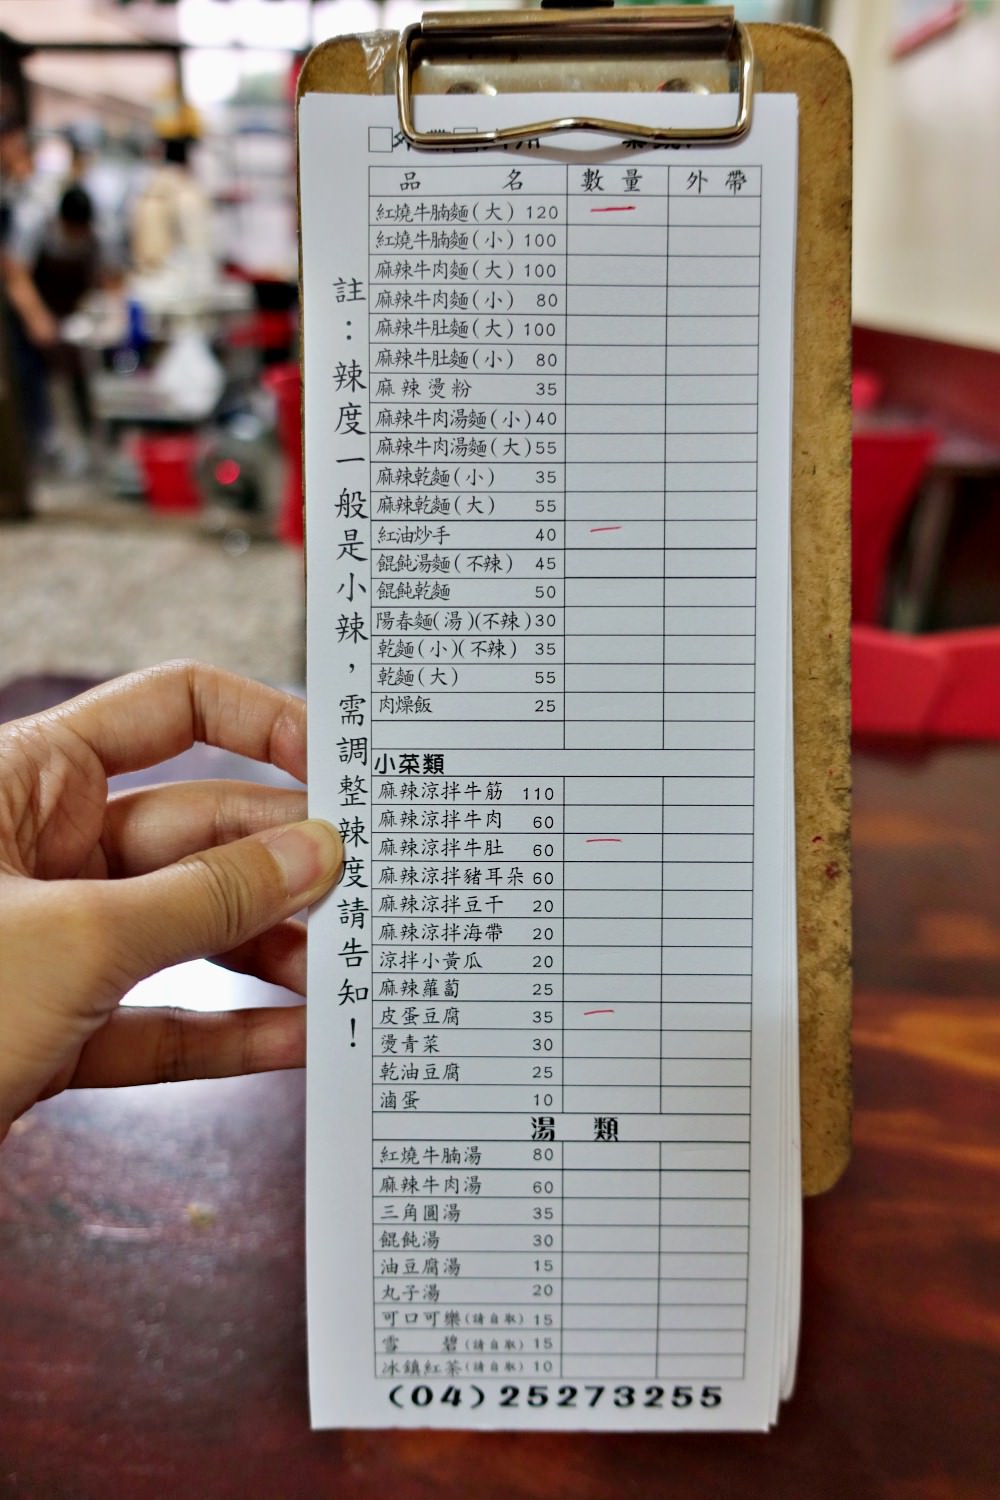 品 名 數量 外帶
紅燒牛腩麵(大) 120
紅燒牛腩麵(小) 100
麻辣牛肉麵(大) 100
麻辣牛肉麵(小) 80
麻辣牛肚麵(大) 100
麻辣牛肚麵(小) 80
麻辣燙粉 35
麻辣牛肉湯麵(小) 40
麻辣牛肉湯麵(大) 55
麻辣乾麵(小) 35
麻辣乾麵(大) 55
紅油炒手 40
餛飩湯麵(不辣) 45
餛飩乾麵 50
陽春麵(湯)(不辣) 30
乾麵(小)(不辣) 35
乾麵(大) 55
肉燥飯 25
小菜類
麻辣涼拌牛筋 110
麻辣涼拌牛肉 60
麻辣涼拌牛肚 60
麻辣涼拌豬耳朵 60
麻辣涼拌豆干 20
麻辣涼拌海帶 20
涼拌小黃瓜 20
麻辣蘿蔔 25
皮蛋豆腐 35
燙青菜 30
乾油豆腐 25
滷蛋 10
湯 類
紅燒牛腩湯 80
麻辣牛肉湯 60
三角圓湯 35
餛飩湯 30
油豆腐湯 15
丸子湯 20
可口可樂(請自取) 15
雪 碧(請自取) 15
冰鎮紅茶(請自取) 10
(04)25273255
註:辣度一般是小辣,需調整辣度請告知!